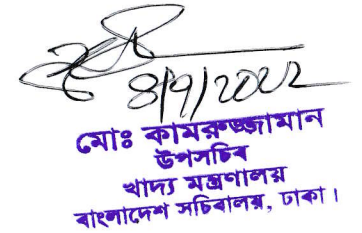 8/9/2022
মোঃ কামরুজ্জামান
উপসচিব
খাদ্য মন্ত্রণালয়
বাংলাদেশ সচিবালয়, ঢাকা।